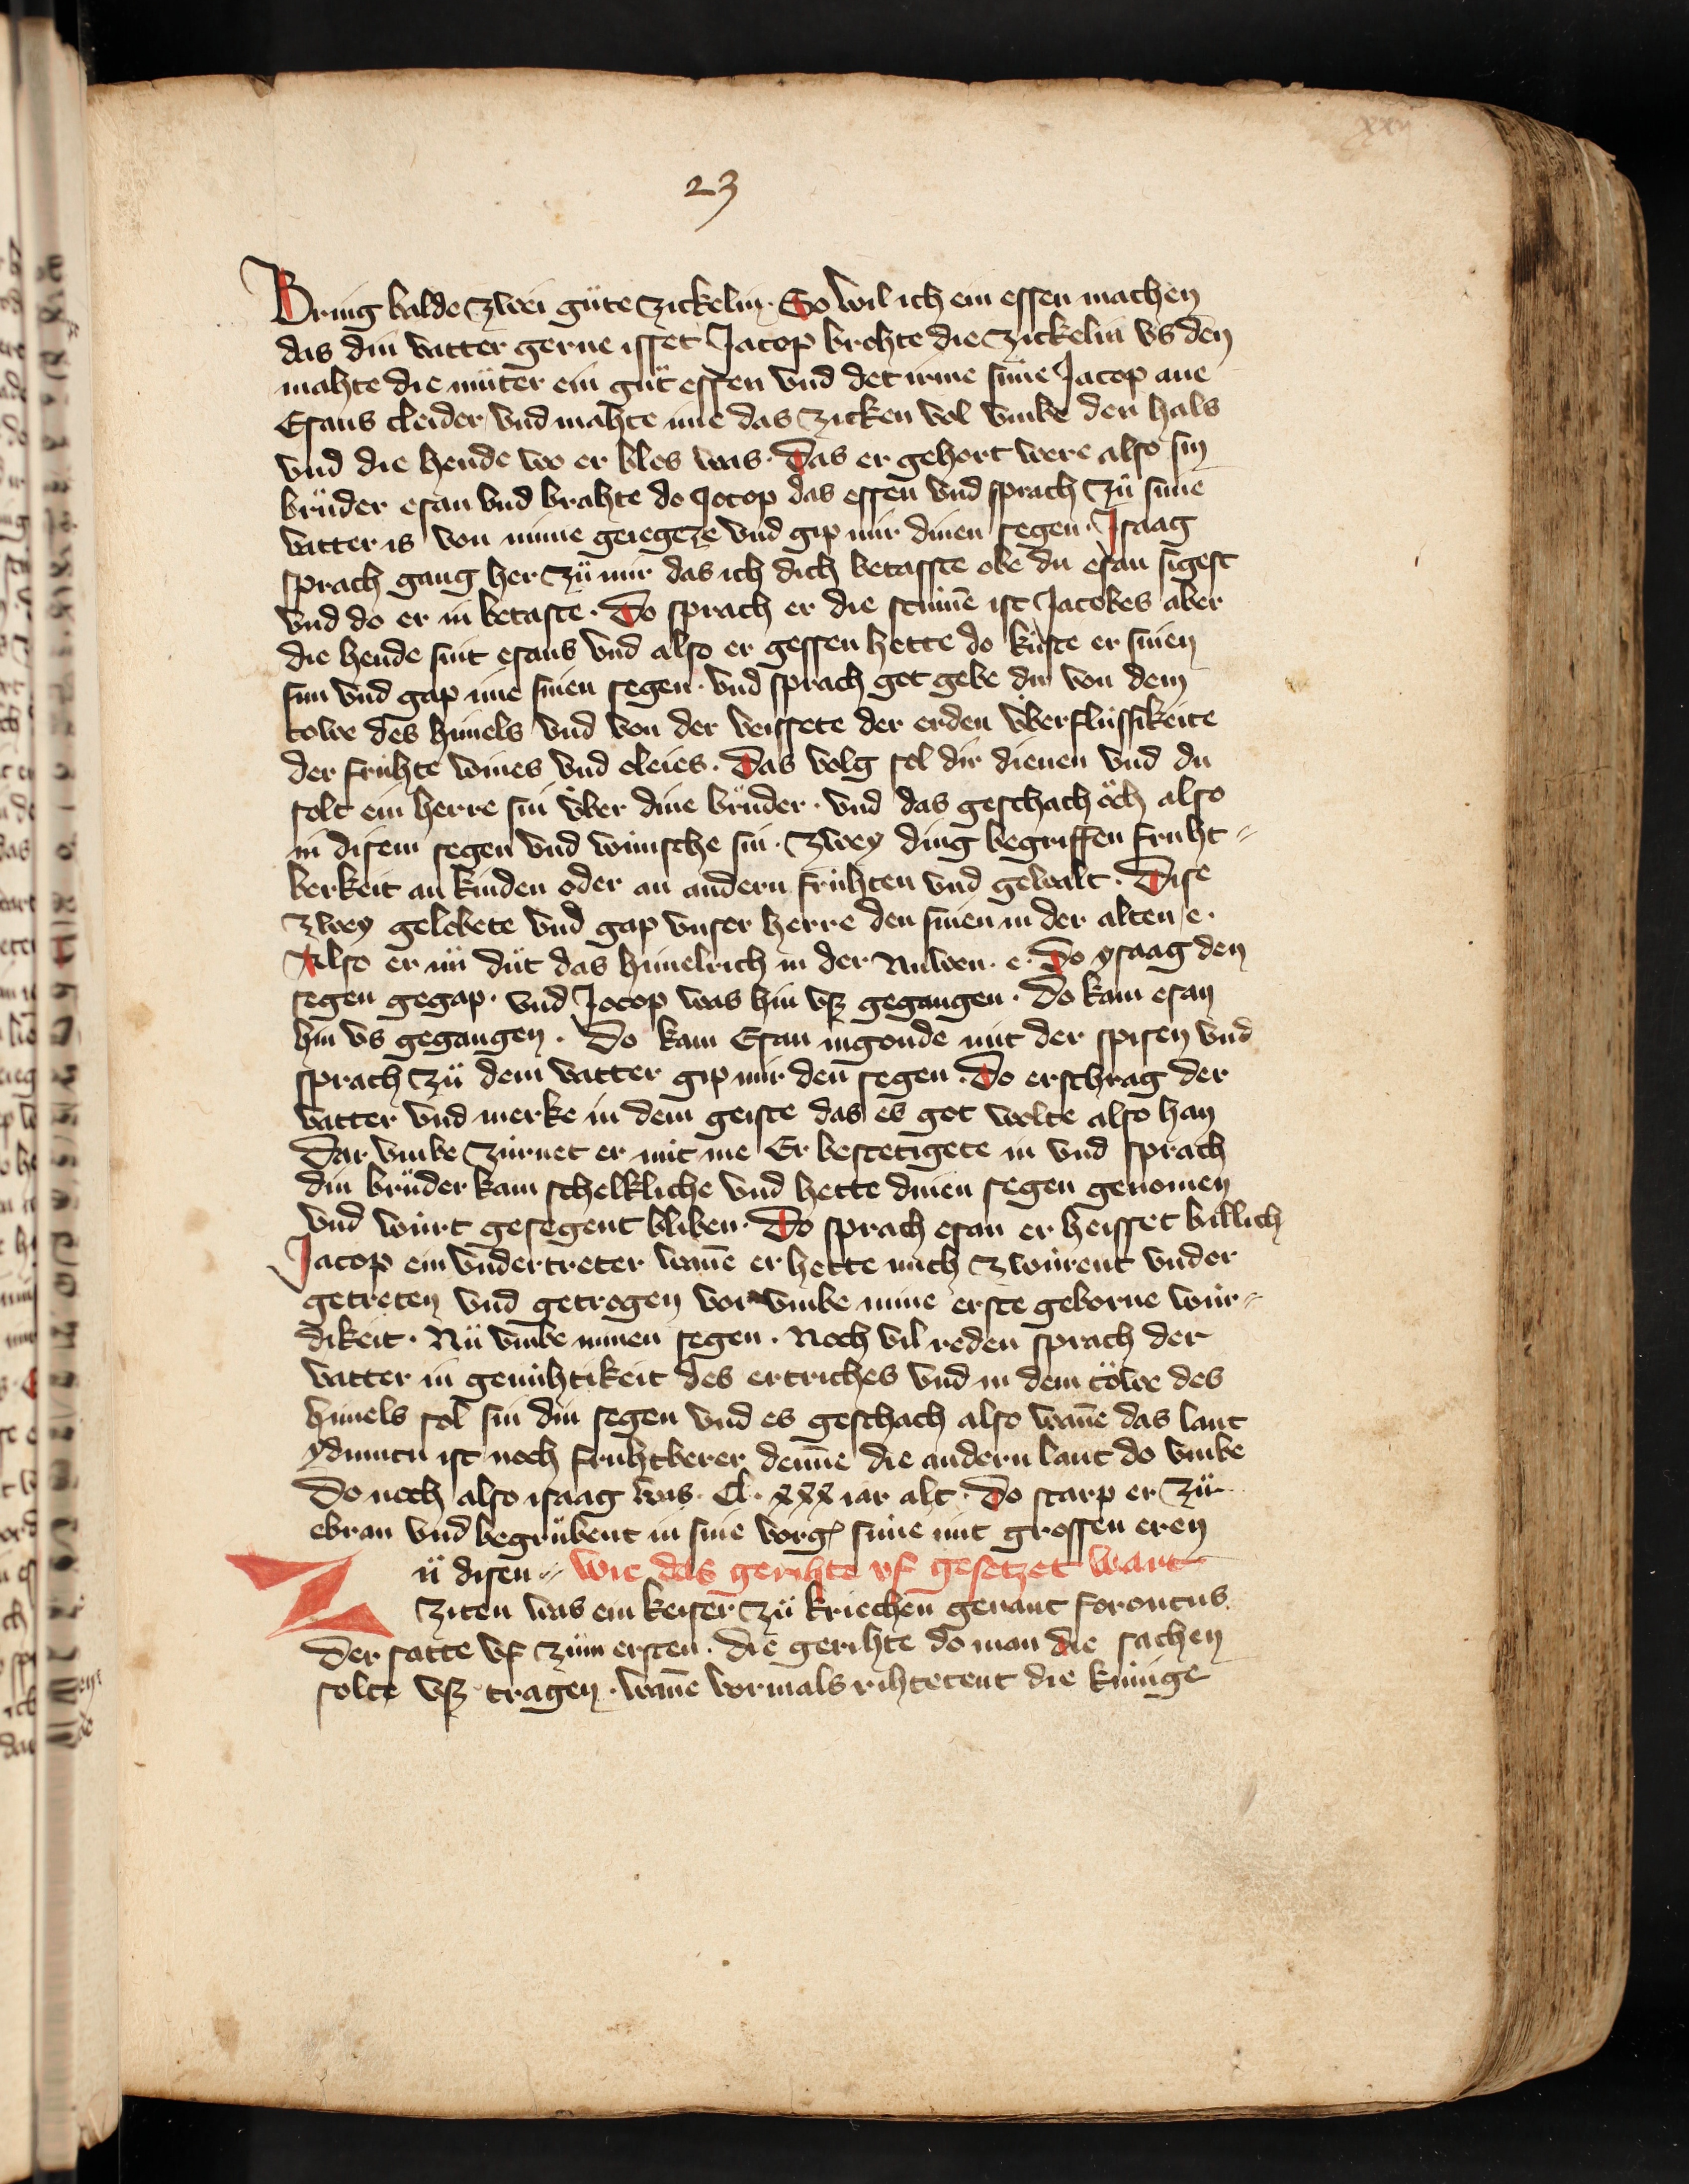 xxij
23
Bring balde zwei güte zickelin. So wil ich ein essen machen
das din vatter gerne isset Jacop brohte die zickelin vs den
mahte die müter ein güt essen vnd det irme sune Jacop ane
Esaus cleider vnd mahte ime das zicken vol vmbe den hals
vnd die hende wo er blos was. Das er gehort were also sin
brüder esau vnd brahte do Jocop das essen vnd sprach zü sime
vatter is von mime geiegeze vnd gip mir dinen segen. Isaag
sprach gang her zü mir das ich dich betasste obe du esau sigest
vnd do er in betaste. Do sprach er die stim̄e ist Jacobes aber
die hende sint esaus vnd also er gessen hette do kuste er sinen
sun vnd gap ime sinen segen. vnd sprach got gebe dir von dem
towe des him̄els vnd von der veissete der erden v̈berflüssikeite
der frühte wines vnd oleies. Das volg sol dir dienen vnd du
solt ein herre sin v̈ber dine brüder. vnd das geschach öch also
in disem segen vnd wünsche sin. Zwey ding begriffen fruht⸗
berkeit an kinden oder an andern frühten vnd gewalt. Dise
zwey gelobete vnd gap vnser herre den sinen in der alten e.
Also er nü düt das him̄elrich in der Nuwen. e. Do ysaag den
segen gegap. vnd Jocop was hin vsz gegangen. Do kam esau
hin vs gegangen. Do kam Esau ingonde mit der spisen vnd
sprach zü dem vatter gip mir den̄ segen. Do erschrag der
vatter vnd merke in dem geiste das es got wolte also han
Dar vmbe zürnet er mit me Er bestetigete in vnd sprach
din brüder kam schelkliche vnd hette dinen segen genomen
vnd würt gesegent bliben. Do sprach esau er heisset billich
Jacop ein vndertreter wan̄e er hette mich zwürent vnder
getreten vnd getrogen vor vmbe mine erste geborne wür⸗
dikeit. Nü vmbe minen segen. Noch vil reden sprach der
vatter in genühtikeit des ertriches vnd in dem töwe des
him̄els sol sin din segen vnd es geschach also wan̄e das lant
ydumen ist noch fruhtberer den̄ne die andern lant do vmbe
Do noch also isaag was. Cl. xxx iar alt. Do starp er zü
ebran vnd begrübent in sine sune mit grossen eren
Zü disen ⸗ wie das gerihte vf gesetzet wart
ziten was ein keiser zü kriechen genant foroneus
der satte vf züm ersten. die gerihte do man die sachen
solte vsz tragen. wan̄e vormals rihtetent die künige